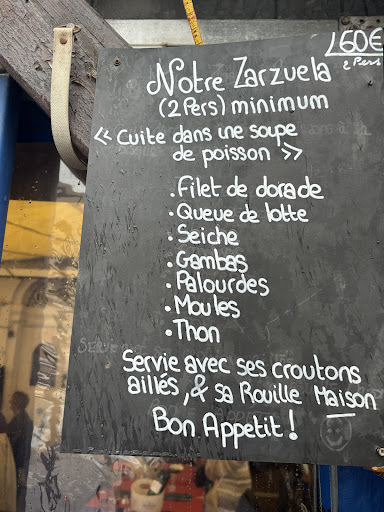 160€
2 Pers
Notre Zarzuela
(2 Pers) minimum
<< Cuite dans une soupe
de poisson >>
. Filet de dorade
. Queue de lotte
. Seiche
. Gambas
. Palourdes
. Moules
. Thon
Servie avec ses croutons
aillés, & sa Rouille Maison
Bon Appetit !